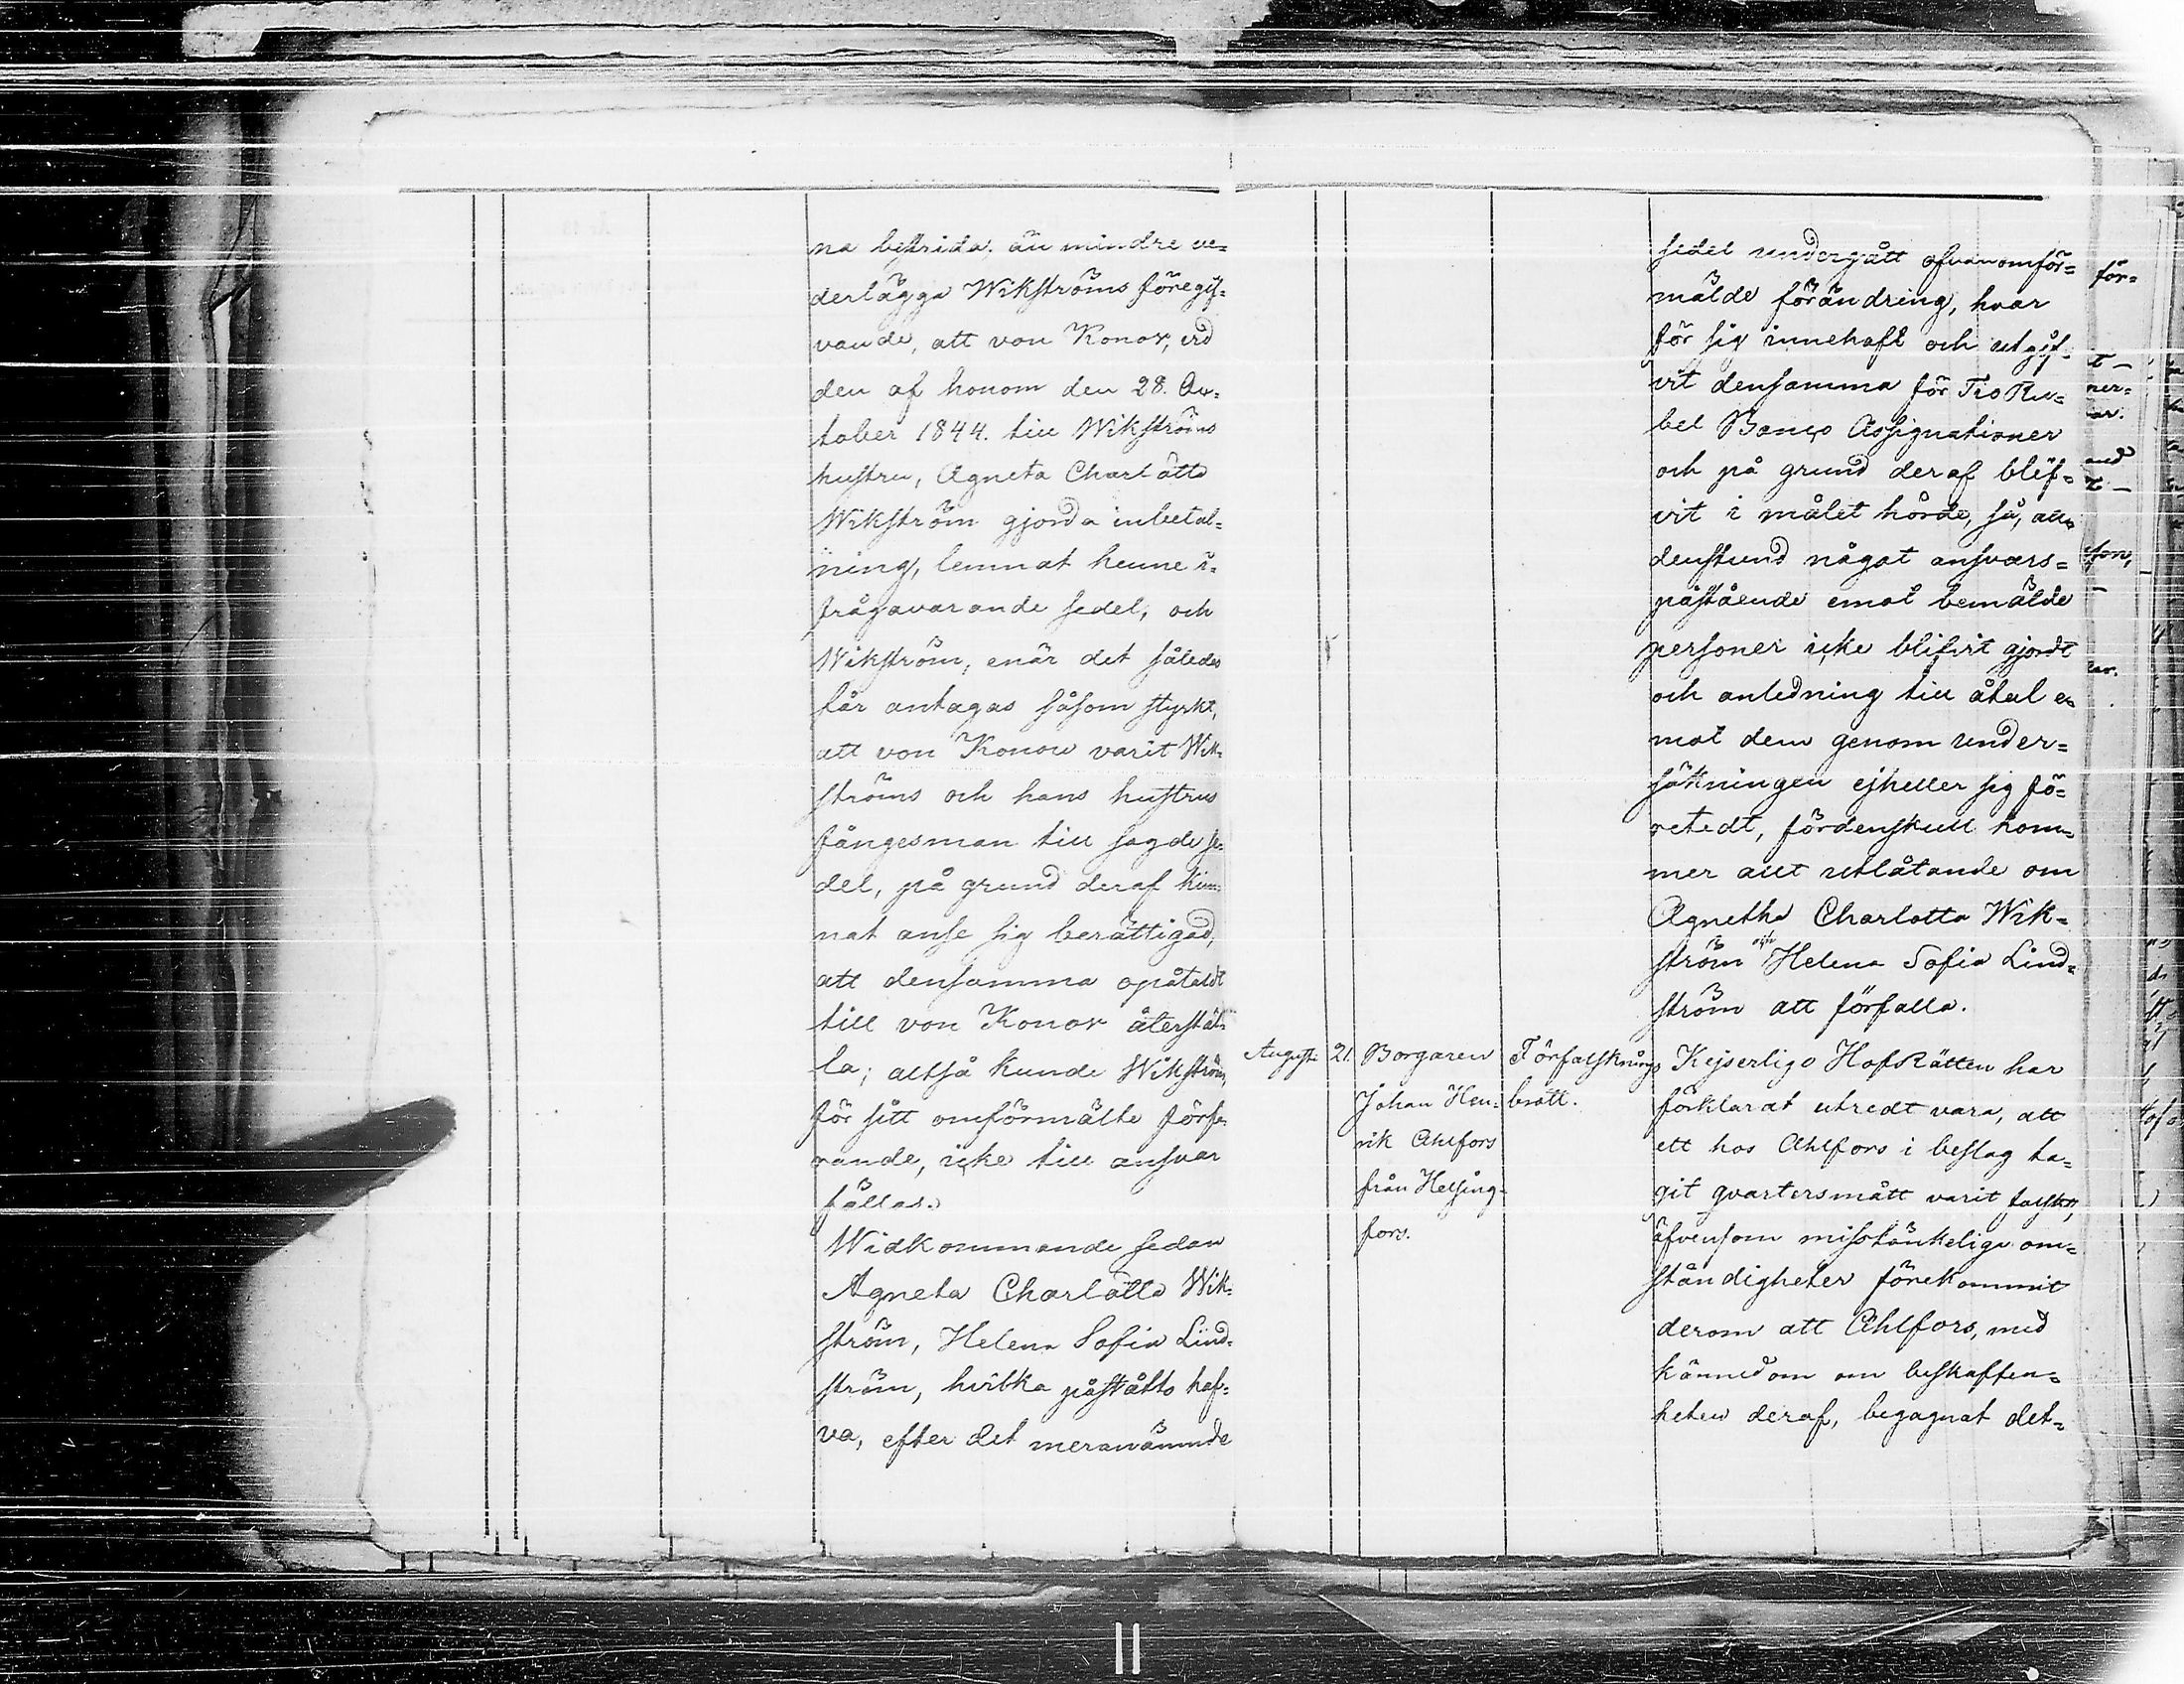 na bestrida, än mindre ve-
derlägga Wikströms föregif-
vande, att von Konow, vid
den af honom den 28. Oc-
tober 1844. till Wikströms
hustru, Agneta Charlotta
Wikström gjorda inbetal-
ning, lemnat henne i-
frågavarande sedel, och
Wikström, enär det således
får antagas såsom styrkt,
att von Konow varit Wik-
ströms och hans hustrus
fångesman till sagde se-
del, på grund deraf kun-
nat anse sig berättigad,
att densamma opåtaldt
till von Konow återstäl-
la; altså kunde Wikström,
för sitt omförmälte förfa-
rande, icke till ansvar
fällas.
Widkommande sedan
Agneta Charlotta Wik-
ström, Helena Sofia Lind-
ström, hvilka påstått haf-
va, efter det meranämnde
sedel undergått ofvanomför-
mälde förändring, hvar
för sig innehaft och utgif-
vit densamma för Tio Ru-
bel Banco Assignationer
och på grund deraf blif-
vit i målet hörde, så, all-
denstund något ansvars-
påstående emot bemälde
personer icke blifvit gjordt
och anledning till åtal e-
mot dem genom under-
sökningen ejheller sig fö-
retedt, fördenskull kom-
mer allt utlåtande om
Agnetha Charlotta Wik-
ström och Helena Sofia Lind-
ström att förfalla.
Augusti 21. Borgaren Förfalsknings Kejserliga HofRätten har
Johan Hen- brott. förklarat utredt vara, att
rik Ahlfors ett hos Ahlfors i beslag ta-
från Helsing- git qvartersmått varit falskt,
fors. äfvensom misstänkelige om-
ständigheter förekommit
derom att Ahlfors, med
kännedom om beskaffen-
heten deraf, begagnat det-